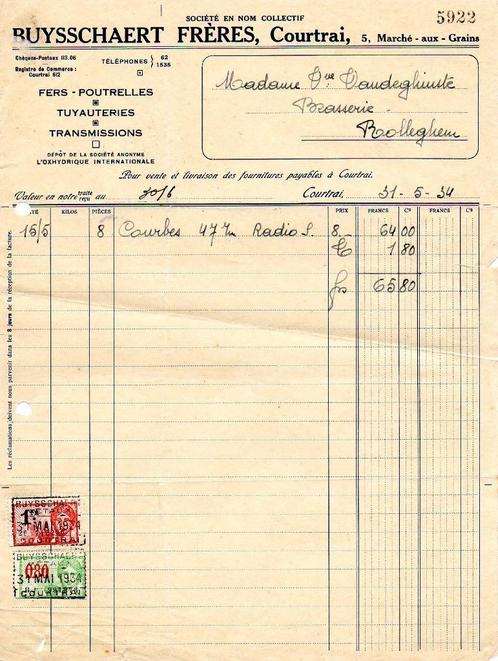 SOCIÉTÉ EN NOM COLLECTIF
5922
BUYSSCHAERT FRÈRES, Courtrai, 5, Marché - aux - Grains
Chèques-Postaux 113.06
Registre de Commerce :
Courtrai 612
TÉLÉPHONES } 62
1535
FERS - POUTRELLES
TUYAUTERIES
TRANSMISSIONS
DÉPÔT DE LA SOCIÉTÉ ANONYME
L'OXHYDRIQUE INTERNATIONALE
Madame Vve Vandeghinste
Brasserie
Rolleghem
Pour vente et livraison des fournitures payables à Courtrai.
Valeur en notre traite reçu au 30/6 Courtrai, 31-5-34
DATE KILOS PIÈCES PRIX FRANCS Cs FRANCS Cs
15/5 8 Courbes 47 7m Radio S. 8,- 64 00
1 80
frs 65 80
Les réclamations doivent nous parvenir dans les 8 jours de la réception de la facture.
BUYSSCHAERT
31 MAI 1934
COURTRAI
BUYSSCHAERT
0,80
31 MAI 1934
COURTRAI